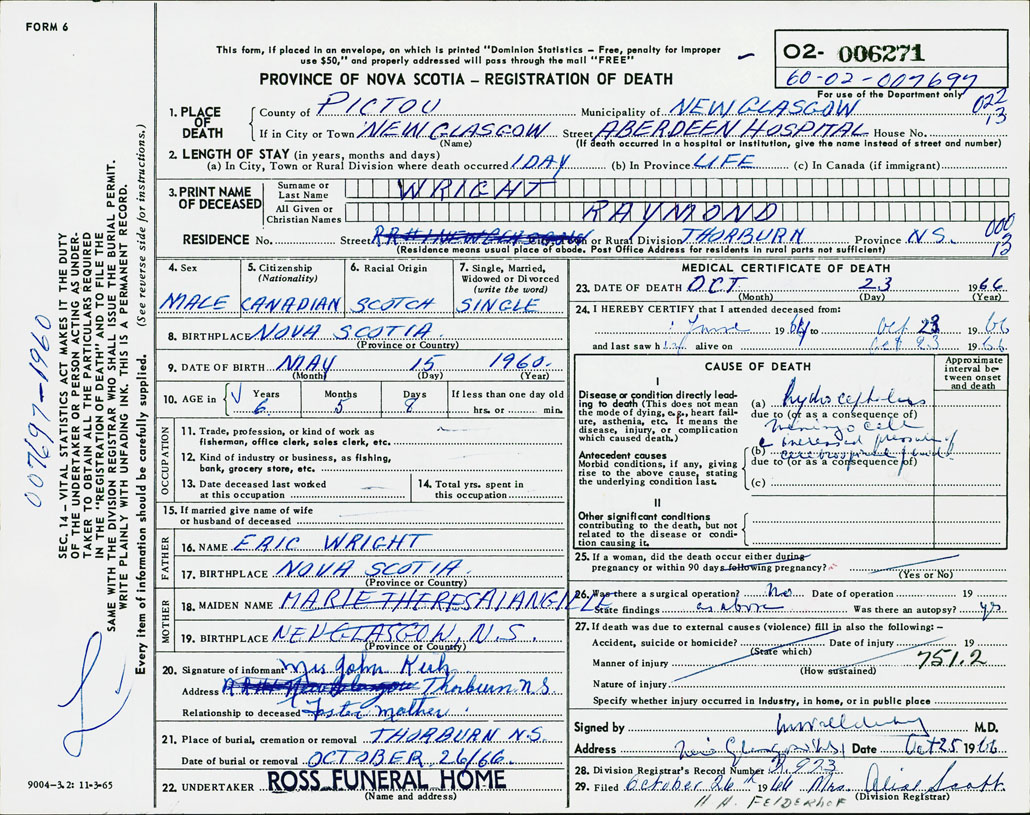 FORM 6
This form, if placed in an envelope, on which is printed "Dominion Statistics – Free, penalty for improper
use $50," and properly addressed will pass through the mail "FREE"
PROVINCE OF NOVA SCOTIA – REGISTRATION OF DEATH
02- 006271
60-02-007697
For use of the Department only
022
13
1. PLACE OF DEATH
County of PICTOU Municipality of NEW GLASGOW
If in City or Town NEW GLASGOW Street ABERDEEN HOSPITAL House No.
(Name) (If death occurred in a hospital or institution, give the name instead of street and number)
2. LENGTH OF STAY (in years, months and days)
(a) In City, Town or Rural Division where death occurred 1 DAY (b) In Province LIFE (c) In Canada (if immigrant)
3. PRINT NAME OF DECEASED
Surname or Last Name WRIGHT
All Given or Christian Names RAYMOND
000
13
RESIDENCE No. Street RR#1 NEW GLASGOW or Rural Division THORBURN Province N.S.
(Residence means usual place of abode. Post Office Address for residents in rural parts not sufficient)
4. Sex
MALE
5. Citizenship (Nationality)
CANADIAN
6. Racial Origin
SCOTCH
7. Single, Married, Widowed or Divorced (write the word)
SINGLE
8. BIRTHPLACE NOVA SCOTIA
(Province or Country)
9. DATE OF BIRTH MAY 15 1960
(Month) (Day) (Year)
10. AGE in Years Months Days If less than one day old
6 5 8 hrs. or min.
OCCUPATION
11. Trade, profession, or kind of work as
fisherman, office clerk, sales clerk, etc.
12. Kind of industry or business, as fishing,
bank, grocery store, etc.
13. Date deceased last worked
at this occupation
14. Total yrs. spent in
this occupation
15. If married give name of wife
or husband of deceased
FATHER
16. NAME ERIC WRIGHT
17. BIRTHPLACE NOVA SCOTIA
(Province or Country)
MOTHER
18. MAIDEN NAME MARIE THERESA LANGILLE
19. BIRTHPLACE NEW GLASGOW, N.S.
(Province or Country)
20. Signature of informant Mrs John
Address RR#1 New Glasgow Thorburn N.S
Relationship to deceased Foster mother
21. Place of burial, cremation or removal THORBURN N.S.
Date of burial or removal OCTOBER 26/66
22. UNDERTAKER ROSS FUNERAL HOME
(Name and address)
MEDICAL CERTIFICATE OF DEATH
23. DATE OF DEATH OCT 23 1966
(Month) (Day) (Year)
24. I HEREBY CERTIFY that I attended deceased from:
June 1964 to Oct 23 1966
and last saw him alive on Oct 23 1966
CAUSE OF DEATH
Approximate interval between onset and death
I
Disease or condition directly leading to death (This does not mean
the mode of dying, e.g., heart failure, asthenia, etc. It means the
disease, injury, or complication
which caused death.)
(a) hydrocephalus
due to (or as a consequence of)
meningocele
Antecedent causes
Morbid conditions, if any, giving
rise to the above cause, stating
the underlying condition last.
(b) c increased pressure of
cerebrospinal fluid
due to (or as a consequence of)
(c)
II
Other significant conditions
contributing to the death, but not
related to the disease or condition causing it.
25. If a woman, did the death occur either during
pregnancy or within 90 days following pregnancy?
(Yes or No)
26. Was there a surgical operation? No Date of operation 19
State findings as above Was there an autopsy? yes
27. If death was due to external causes (violence) fill in also the following: –
Accident, suicide or homicide? Date of injury 19
(State which)
Manner of injury 751.2
(How sustained)
Nature of injury
Specify whether injury occurred in industry, in home, or in public place
Signed by M.D.
Address New Glasgow NS Date Oct 25 1966
28. Division Registrar's Record Number 923
29. Filed October 26th 1966 Mrs. Alice Scott
(Division Registrar)
H H FELDERHOF
007697-1960
SEC. 14 – VITAL STATISTICS ACT MAKES IT THE DUTY
OF THE UNDERTAKER OR PERSON ACTING AS UNDERTAKER TO OBTAIN ALL THE PARTICULARS REQUIRED
IN THE "REGISTRATION OF DEATH" AND TO FILE THE
SAME WITH THE DIVISION REGISTRAR WHO SHALL ISSUE THE BURIAL PERMIT.
WRITE PLAINLY WITH UNFADING INK. THIS IS A PERMANENT RECORD.
Every item of information should be carefully supplied. (See reverse side for instructions.)
9004-3.2: 11-3-65